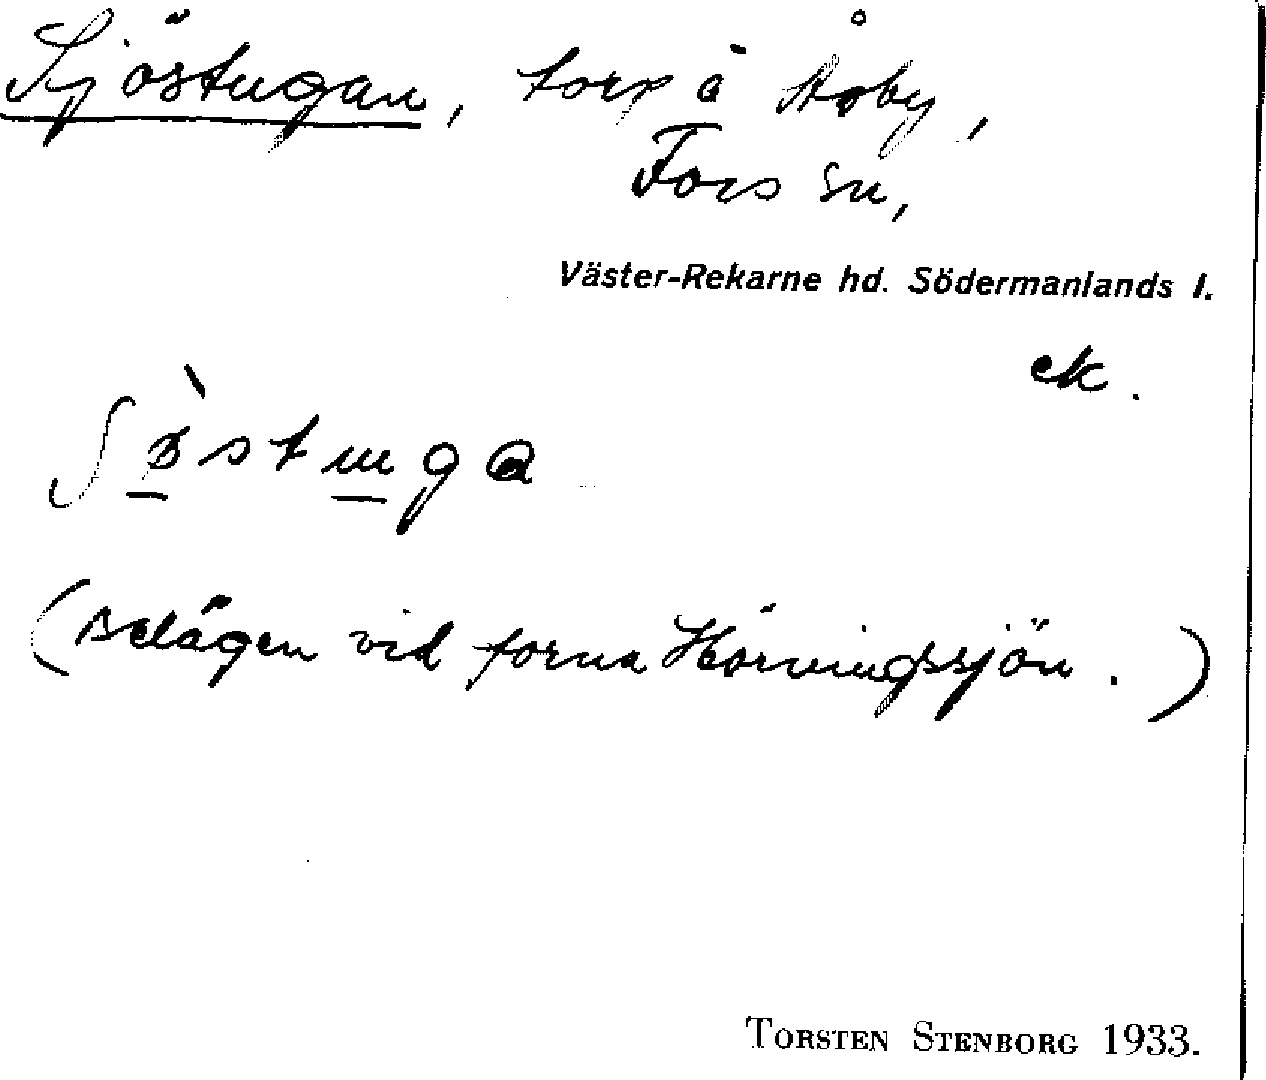 Sjöstugan, torp å Åby,
Fors sn,
Väster-Rekarne hd. Södermanlands l.
ek.
(Belägen vid forna Hörningssjön.)
TORSTEN STENBORG 1933.